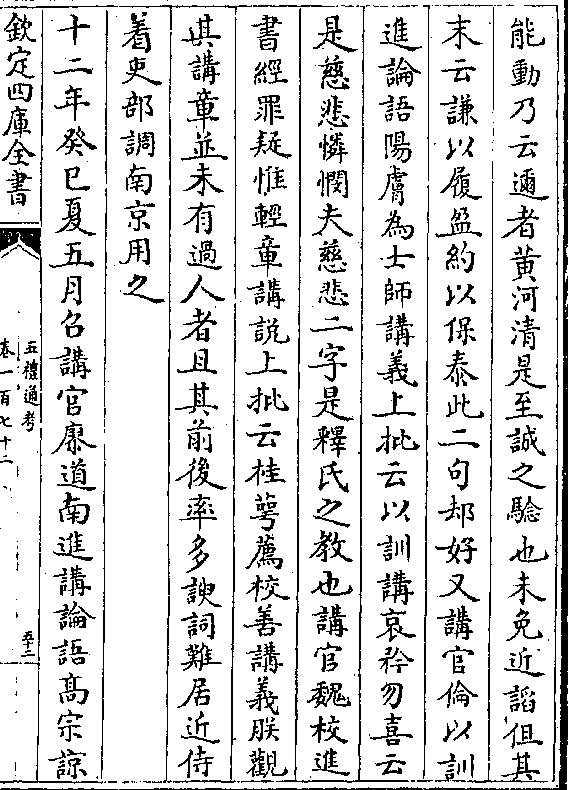 能動乃云邇者黄河清是至誠之驗也未免近諂但其
末云謙以履盈約以保泰此二句却好又講官倫以訓
進論語陽膚為士師講義上批云以訓講哀矜勿喜云
是慈悲憐憫夫慈悲二字是釋氏之教也講官魏校進
書經罪疑惟輕章講説上批云桂萼薦校善講義朕觀
其講章並未有過人者且其前後率多諛詞難居近侍
着吏部調南京用之
十二年癸巳夏五月召講官廖道南進講論語髙宗諒
欽定四庫全書
五禮通考
卷一百七十二
五十二